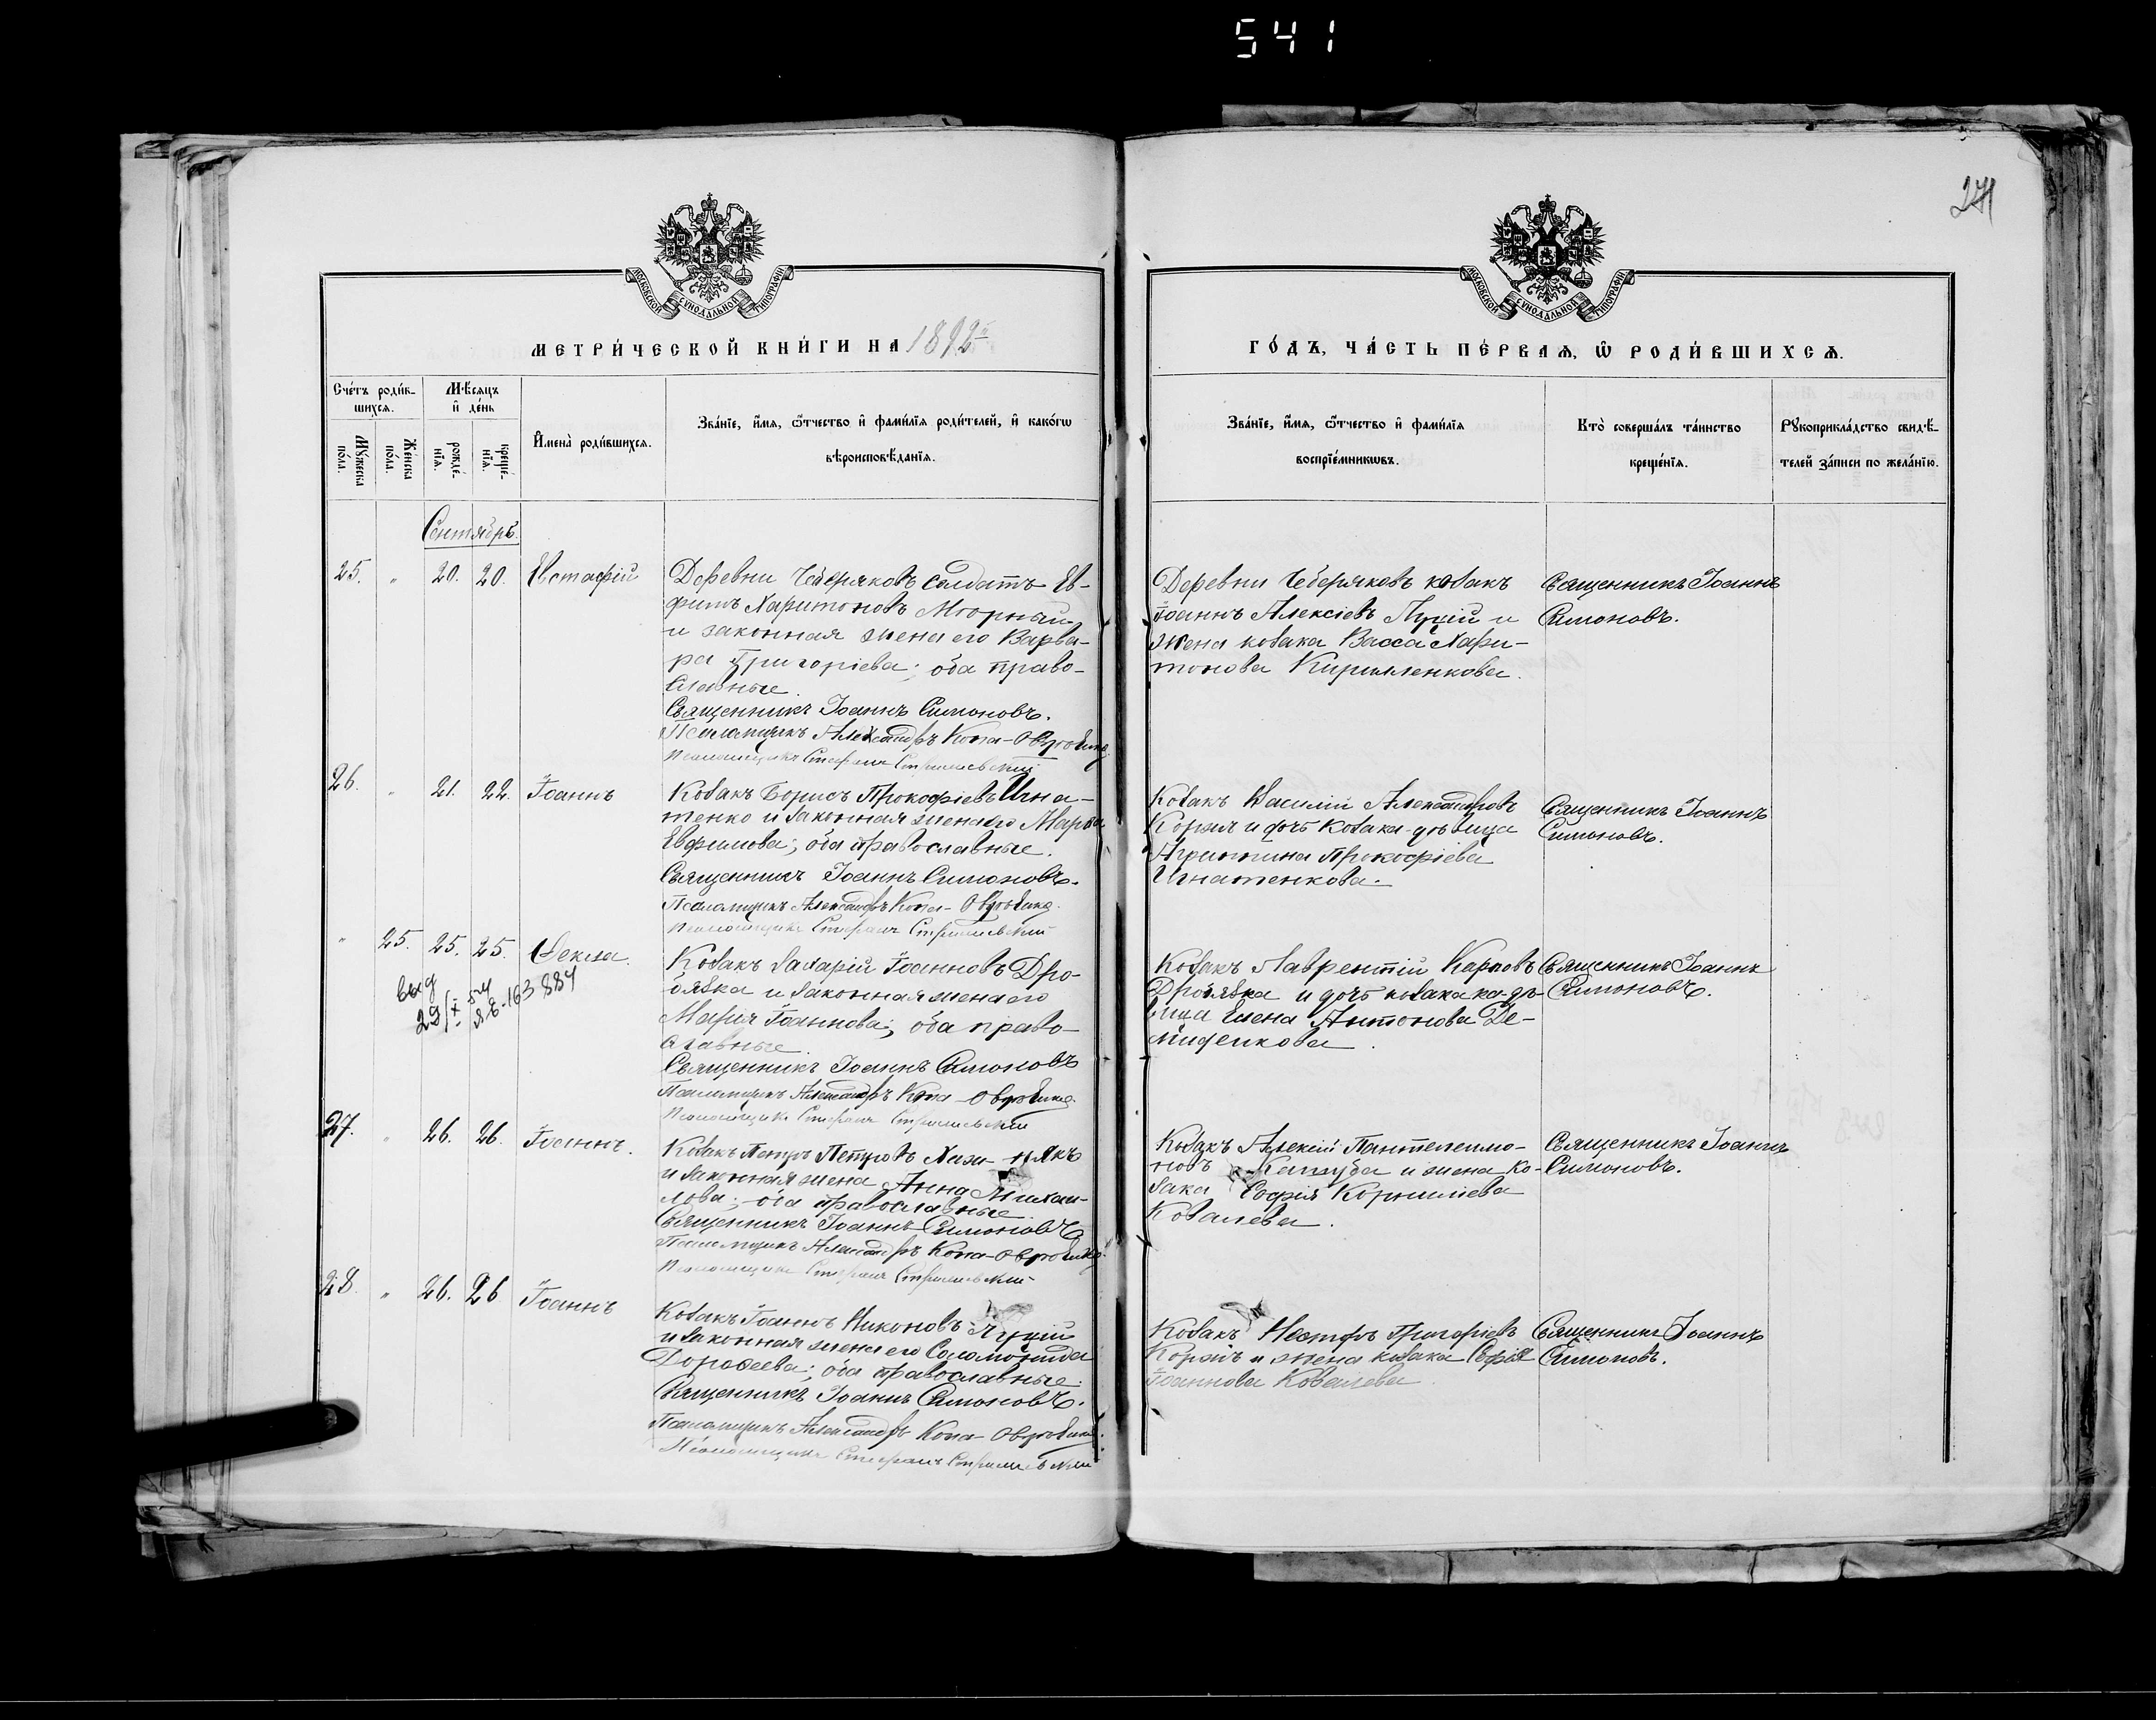 541
271
МОСКОВСКОЙ СУНОДАЛЬНОЙ ТИПОГРАФІИ
МОСКОВСКОЙ СУНОДАЛЬНОЙ ТИПОГРАФІИ
МЕТРИ́ЧЕСКОЙ КНИ́ГИ НА 1892й
ГО́ДЪ, ЧА́СТЬ ПЕ́РВАѦ, Ѡ҆ РОДИ́ВШИХСѦ.
Сче́тъ роди́в-
шихсѧ.
Мꙋ́жеска по́ла.
Же́нска по́ла.
Мѣ́сѧцъ
и҆ де́нь
рожде́-
нїѧ.
креще́-
нїѧ.
И҆мена̀ роди́вшихсѧ.
Зва́нїе, и҆́мѧ, ѻ҆́тчество и҆ фами́лїѧ роди́телей, и҆ како́гѡ
вѣроисповѣ́данїѧ.
Зва́нїе, и҆́мѧ, ѻ҆́тчество и҆ фами́лїѧ
воспрїе́мникѡвъ.
Кто̀ соверша́лъ та́инство
креще́нїѧ.
Рꙋкоприкла́дство свидѣ́-
телей за́писи по жела́нїю.
Сентябрь.
25. " 20. 20. Евстафій
Деревни Чеберяковъ солдатъ Ев-
фимъ Харитоновъ
и законная жена его Варва-
ра Григоріева; оба право-
славные.
Священникъ Іоаннъ Симоновъ.
Псаломщикъ Александръ Кона-
Псаломщикъ Стефанъ
Деревни Чеберяковъ козакъ
Іоаннъ Алексіевъ Луцій и
жена козака Васса Хари-
тонова Кириленкова.
Священникъ Іоаннъ
Симоновъ.
26. " 21. 22. Іоаннъ
Козакъ Борисъ Прокофіевъ Игна-
тенко и законная жена его Марѳа
Евфимова; оба православные.
Священникъ Іоаннъ Симоновъ.
Псаломщикъ Александръ Кона-
Псаломщикъ Стефанъ
Козакъ Василій Александровъ
Коржъ и дочь козака дѣвица
Агриппина Прокофіева
Игнатенкова.
Священникъ Іоаннъ
Симоновъ.
" 25. 25. 25. Ѳекла.
выд
29/X 54
ЯЕ.163884
Козакъ Захарій Іоанновъ Дро-
бязка и законная жена его
Марія Іоаннова; оба право-
славные.
Священникъ Іоаннъ Симоновъ
Псаломщикъ Александръ Кона-
Псаломщикъ Стефанъ
Козакъ Лаврентій Карповъ
Дробязка и дочь козака дѣ-
вица Елена Антонова Де-
миденкова.
Священникъ Іоаннъ
Симоновъ.
27. " 26. 26. Іоаннъ.
Козакъ Петръ Петровъ Хижнякъ
и законная жена Анна Михаи-
лова; оба православные.
Священникъ Іоаннъ Симоновъ
Псаломщикъ Александръ Кона-
Псаломщикъ Стефанъ
Козакъ Алексій Пантелеимо-
новъ Капшуба и жена ко-
зака Софія Корнилиева
Ковалева.
Священникъ Іоаннъ
Симоновъ.
28. " 26. 26 Іоаннъ
Козакъ Іоаннъ Никоновъ Луцій
и законная жена его Соломонида
Дороѳеева; оба православные.
Священникъ Іоаннъ Симоновъ.
Псаломщикъ Александръ Кона-
Псаломщикъ Стефанъ
Козакъ Несторъ Григоріевъ
Коржъ и жена козака Софія
Іоаннова Ковалева.
Священникъ Іоаннъ
Симоновъ.